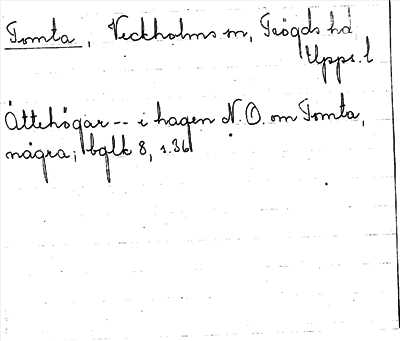 Tomta, Veckholms sn, Trögds hd
Upps. l
Ättehögar -- i hagen N.O. om Tomta,
några; bglk 8, s.36